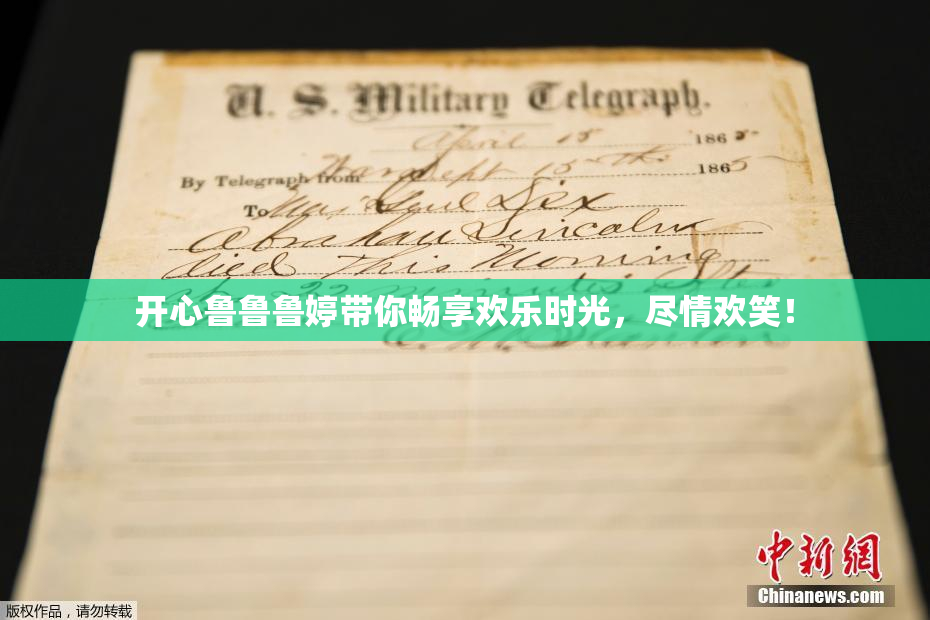 U. S. Military Telegraph.
April 15 1865
By Telegraph from War Dept 15th 1865
To Maj Genl Dix
Abraham Lincoln
died This Morning
at 22 minutes after
开心鲁鲁鲁婷带你畅享欢乐时光，尽情欢笑！
E. M. Stanton
中新网
Chinanews.com
版权作品，请勿转载